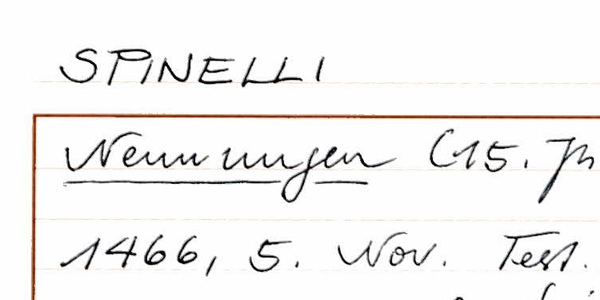 SPINELLI
Nennungen (15. Jh
1466, 5. Nov. Test.